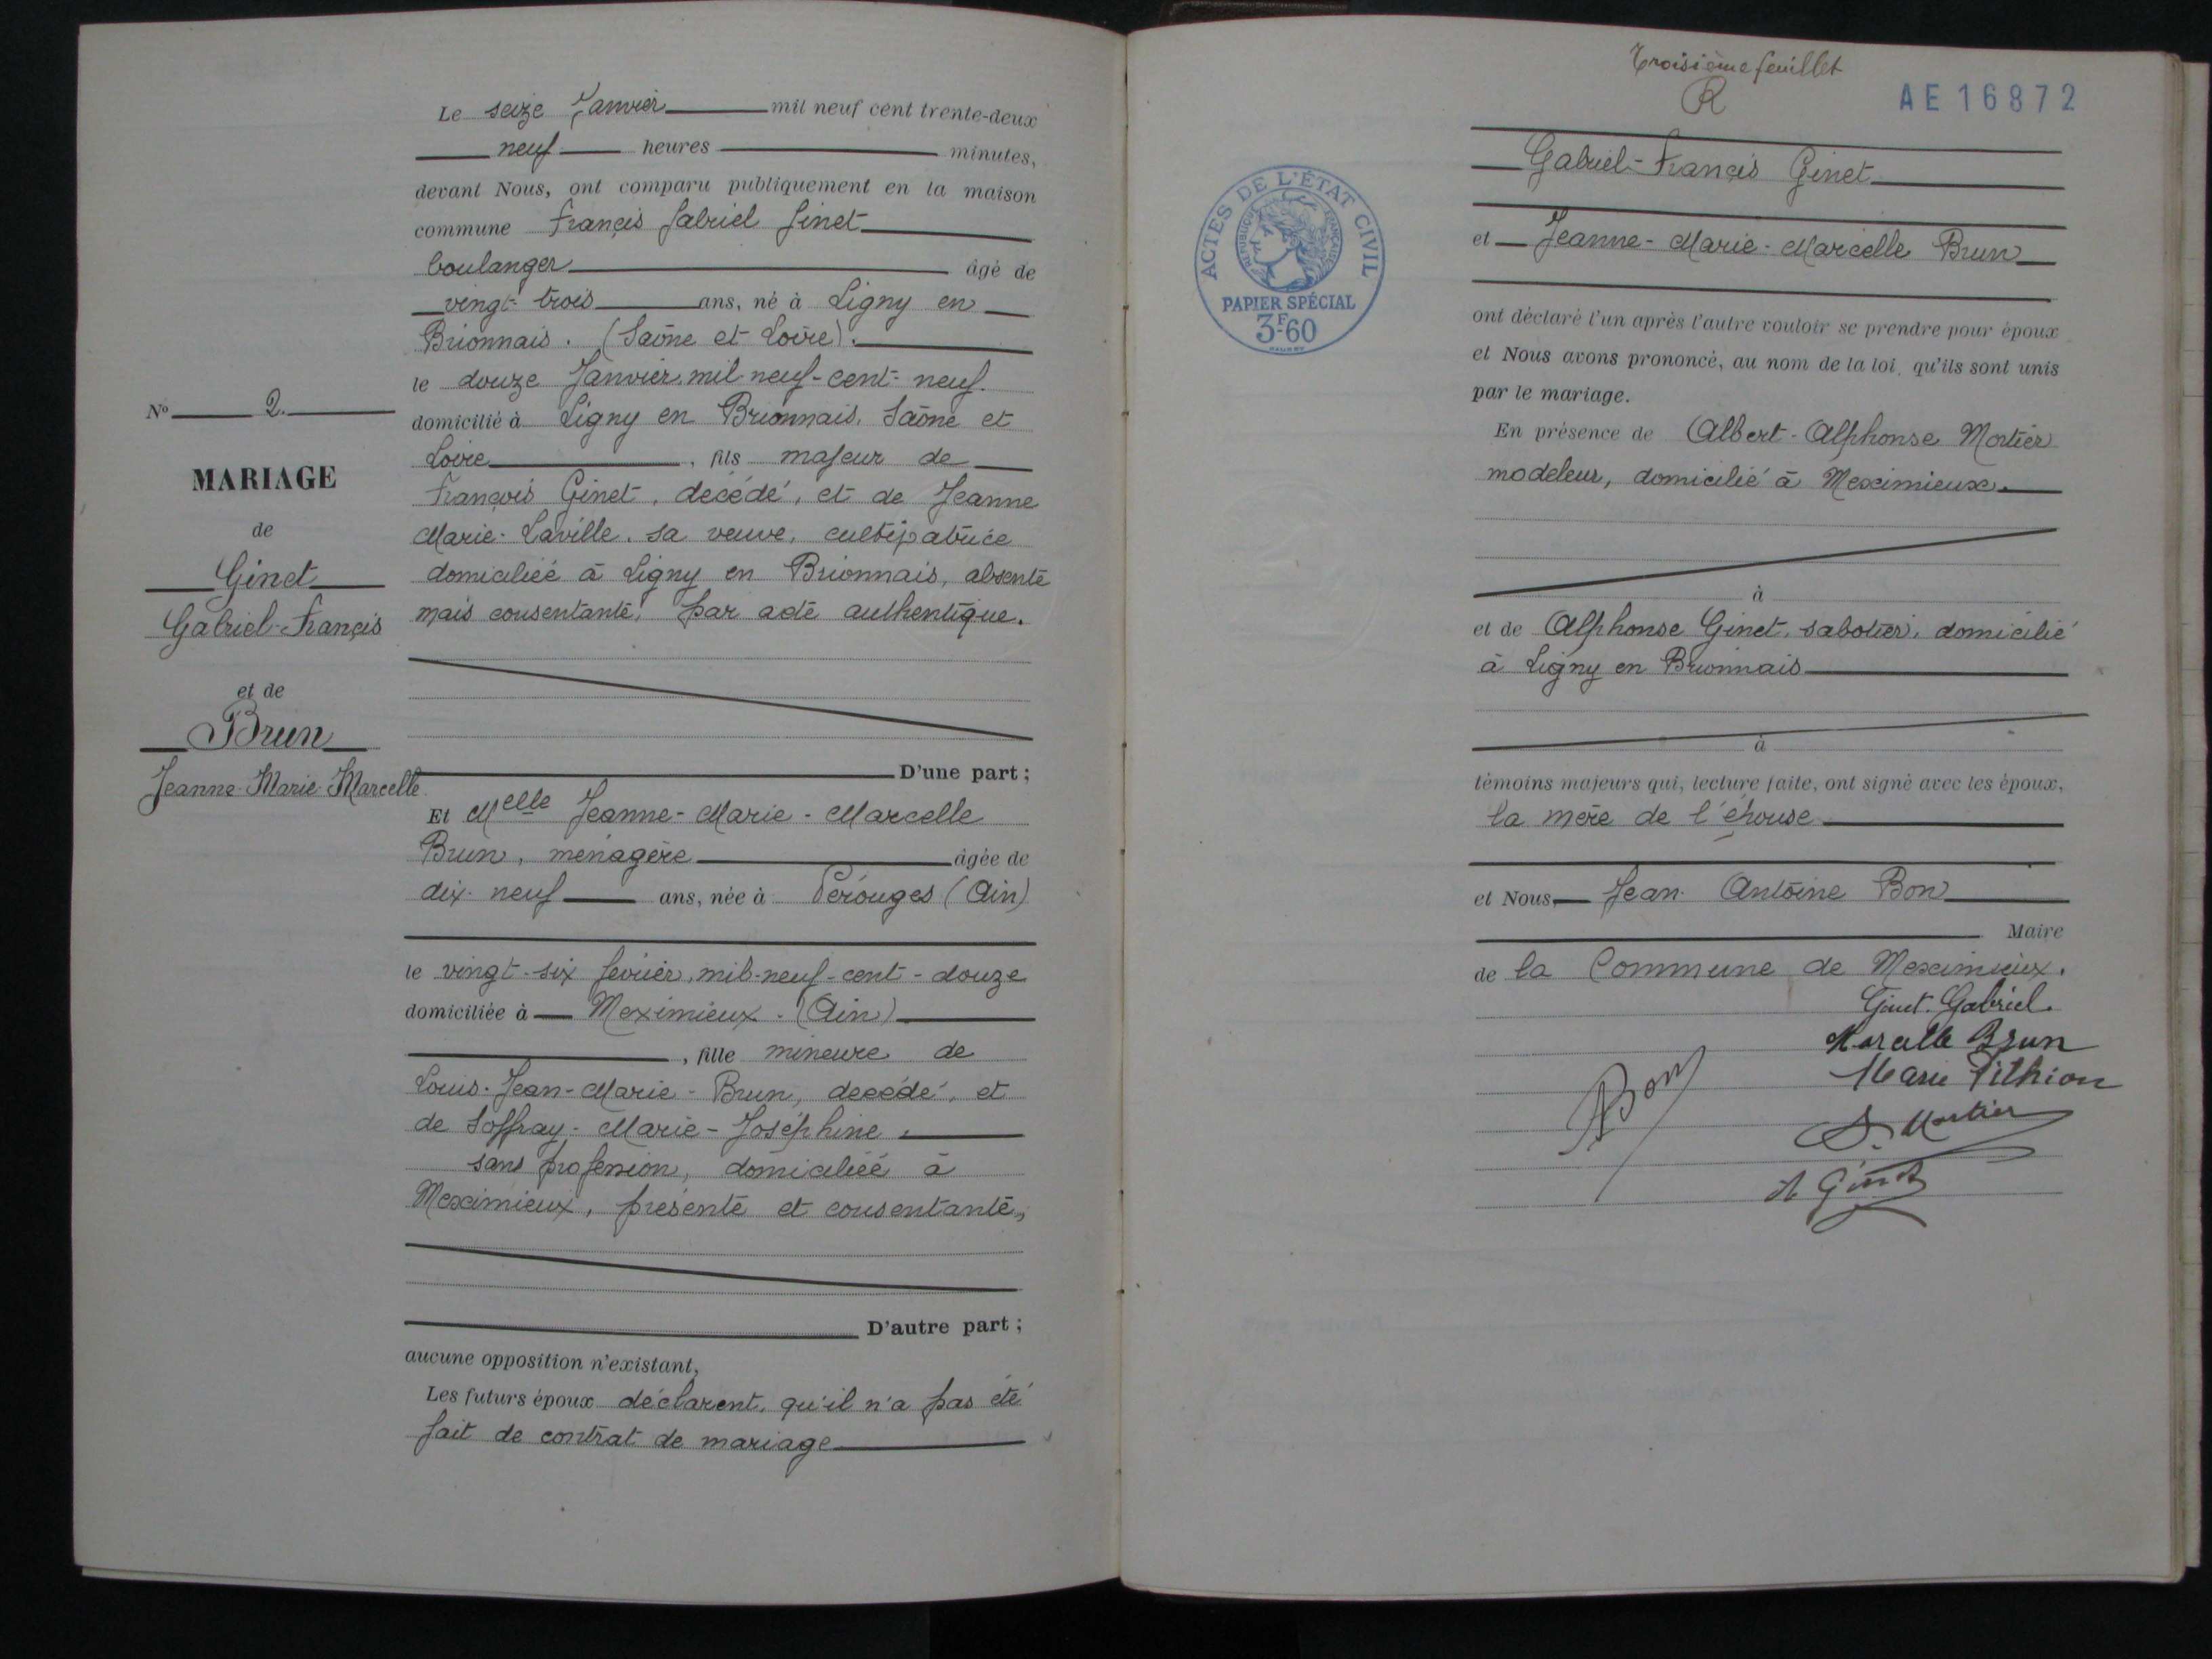 Le seize Janvier mil neuf cent trente-deux
neuf heures minutes,
devant Nous, ont comparu publiquement en la maison
commune Francis Gabriel Ginet
boulanger âgé de
vingt-trois ans, né à Ligny en
Brionnais. (Saône et Loire).
le douze Janvier, mil-neuf-cent-neuf.
domicilié à Ligny en Brionnais, Saône et
Loire, fils majeur de
François Ginet, décédé, et de Jeanne
Marie-Laville, sa veuve, cultivatrice
domiciliée à Ligny en Brionnais, absente
mais consentante, par acte authentique.
D'une part ;
Nº 2.
MARIAGE
de
Ginet
Gabriel-Francis
et de
Brun
Jeanne-Marie-Marcelle
Et Melle Jeanne-Marie-Marcelle
Brun, ménagère âgée de
dix-neuf ans, née à Pérouges (Ain)
le vingt-six février, mil-neuf-cent-douze
domiciliée à Meximieux. (Ain)
, fille mineure de
Louis-Jean-Marie-Brun, décédé, et
de Soffray-Marie-Joséphine,
sans profession, domiciliée à
Meximieux, présente et consentante,
D'autre part ;
aucune opposition n'existant,
Les futurs époux déclarent, qu'il n'a pas été
fait de contrat de mariage
Troisième feuillet
R
AE 16872
ACTES DE L'ÉTAT CIVIL
RÉPUBLIQUE FRANÇAISE
PAPIER SPÉCIAL
3F60
Gabriel-Francis Ginet
et Jeanne-Marie-Marcelle Brun
ont déclaré l'un après l'autre vouloir se prendre pour époux
et Nous avons prononcé, au nom de la loi, qu'ils sont unis
par le mariage.
En présence de Albert-Alphonse Mortier
modeleur, domicilié à Meximieux.
à
et de Alphonse Ginet, sabotier, domicilié
à Ligny en Brionnais
à
témoins majeurs qui, lecture faite, ont signé avec les époux,
la mère de l'épouse
et Nous, Jean-Antoine Bon
Maire
de la Commune de Meximieux.
Ginet Gabriel.
Marcelle Brun
Marie Pithion
A. Mortier
ABon
A Ginet